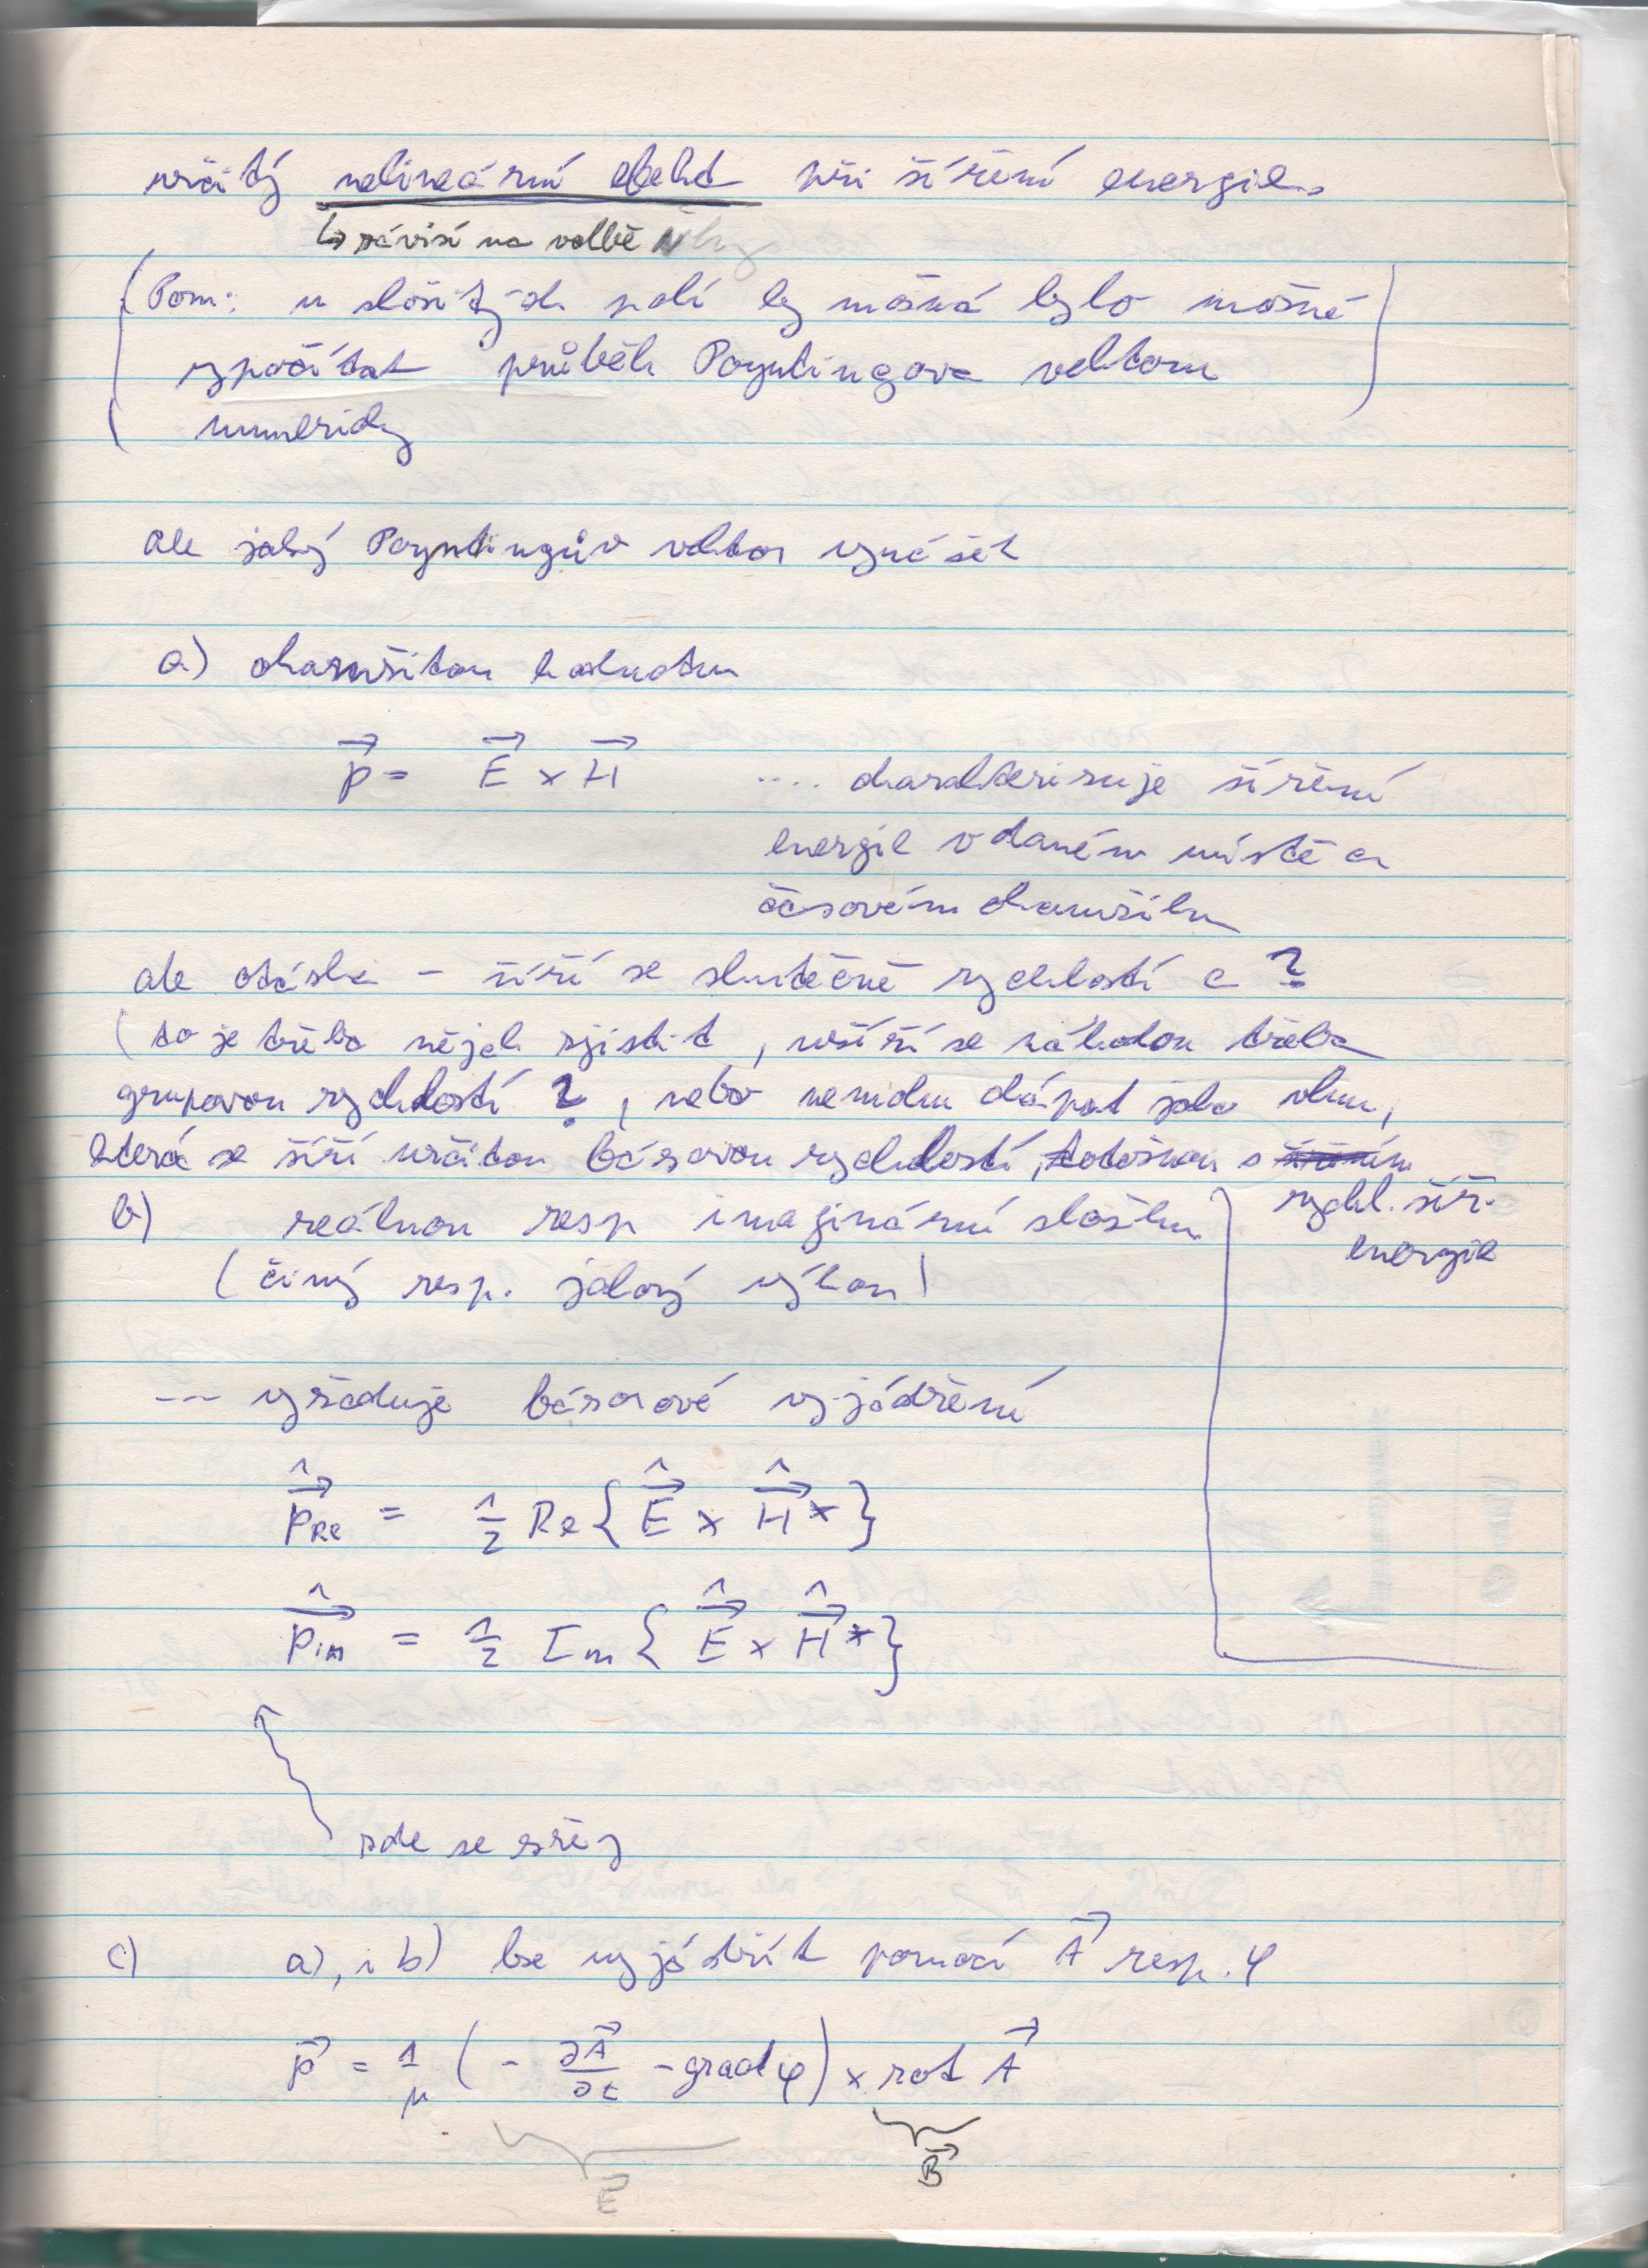 určitý nelineární efekt při šíření energie.
↳ závisí na volbě
(Pozn: u složitých polí by možná bylo možné
vypočítat průběh Poyntingova vektoru
numericky)
ale jaký Poyntingův vektor vynášet
a) okamžitou hodnotu
p⃗ = E⃗ × H⃗ .... charakterizuje šíření
energie v daném místě a
časovém okamžiku
ale otázka – šíří se skutečně rychlostí c ?
(to je třeba nějak zjistit, nešíří se náhodou třeba
grupovou rychlostí ?, nebo nemohu chápat jako vlnu,
která se šíří určitou fázovou rychlostí, totožnou s
rychl. šíř.
energie
b) reálnou resp imaginární složku
(činný resp. jalový výkon)
--- vyžaduje fázorové vyjádření
p̂⃗_Re = 1/2 Re{Ê⃗ × Ĥ⃗*}
p̂⃗_im = 1/2 Im{Ê⃗ × Ĥ⃗*}
zde se
c) a), i b) lze vyjádřit pomocí A⃗ resp. φ
p⃗ = 1/μ (- ∂A⃗/∂t - grad φ) × rot A⃗
E⃗ B⃗